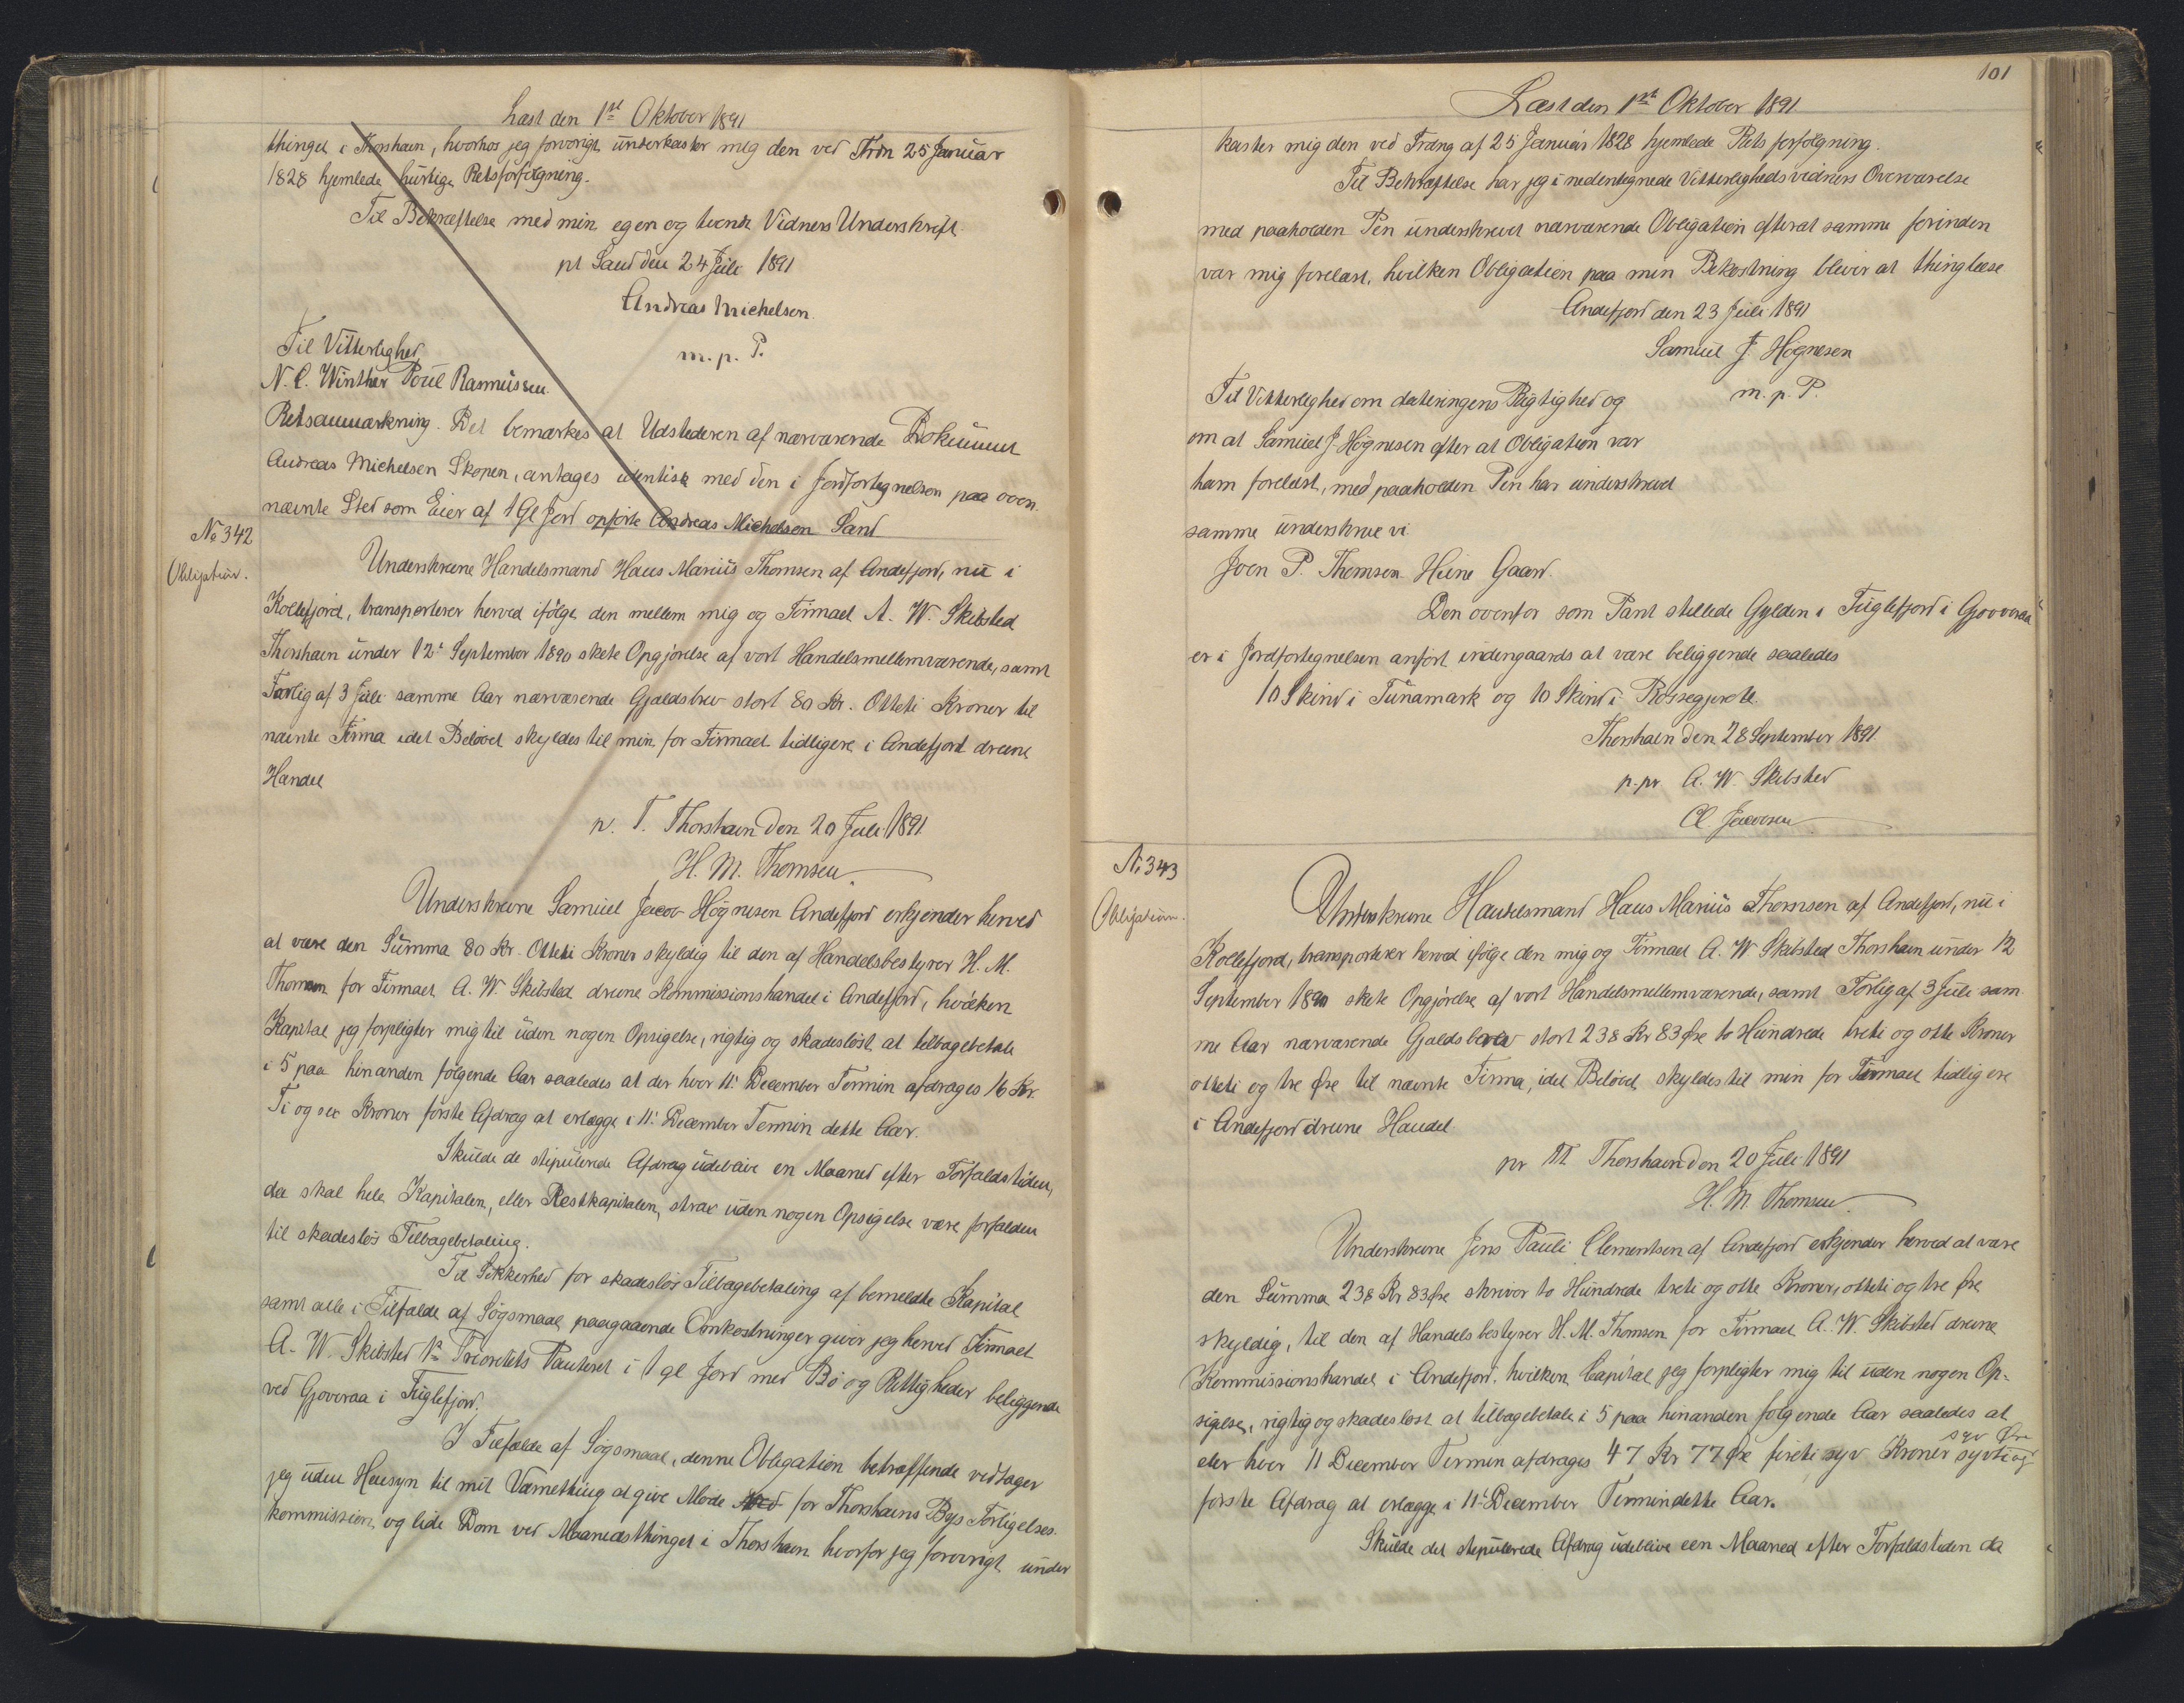 Læst den 1ste Oktober 1891
thinget i Thorshavn, hvorhos jeg forøvrigt underkaster mig den ved Frdn 25 Januar
1828 hjemlede hurtige Retsforfølgning.
Til Bekræftelse med min egen og tvende Vidners Underskrift.
pt Sand den 24 Juli 1891
Andreas Michelsen
m. p. P.
Til Vitterlighed
N. C. Winther Poul Rasmussen.
Retsanmærkning. Det bemærkes at Udstederen af nærværende Dokument
Andreas Michelsen Skopen, antages identisk med den i Jordfortegnelsen paa oven
nævnte Sted som Eier af 1 Gl Jord opførte Andreas Michelsen Sand
No 342
Obligation.
Underskrevne Handelsmand Hans Marius Thomsen af Andefjord, nu i
Kollefjord, transporterer herved ifølge den mellem mig og Firmaet A. W. Skibsted
Thorshavn under 12te September 1890 skete Opgjørelse af vort Handelsmellemværende, samt
Forlig af 3 Juli samme Aar nærværende Gjældsbrev stort 80 Kr. Otteti Kroner til
nævnte Firma idet Beløbet skyldes til min for Firmaet tidligere i Andefjord drevne
Handel
p. T. Thorshavn den 20 Juli 1891
H. M. Thomsen
Underskrevne Samuel Jacob Høgnesen Andefjord erkjender herved
at være den Summa 80 Kr. Otteti Kroner skyldig til den af Handelsbestyrer H. M.
Thomsen for Firmaet A. W. Skibsted drevne Kommissionshandel i Andefjord, hvilken
Kapital jeg forpligter mig til uden nogen Opsigelse, rigtig og skadesløst at tilbagebetale
i 5 paa hinanden følgende Aar saaledes at der hver 11te December Termin afdrages 16 Kr.
Ti og sex Kroner første Afdrag at erlægge i 11te December Termin dette Aar.
Skulde de stipulerede Afdrag udeblive en Maaned efter Forfaldstiden,
da skal hele Kapitalen, eller Restkapitalen, strax uden nogen Opsigelse være forfalden
til skadesløs Tilbagebetaling.
Til Sikkerhed for skadesløs Tilbagebetaling af bemeldte Kapital
samt alle i Tilfælde af Søgsmaal paagaaende Omkostninger giver jeg herved Firmaet
A. W. Skibsted 1ste Prioritets Panteret i 1 gl Jord med Bø og Rettigheder beliggende
ved Gjovvraa i Fuglefjord.
I Tilfælde af Søgsmaal, denne Obligation betræffende vedtager
jeg uden Hensyn til mit Værnething at give Møde for Thorshavns Byes Forligelses
kommission og lide Dom ved Maanedsthinget i Thorshavn hvorfor jeg forøvrigt under
101
Læst den 1ste Oktober 1891
kaster mig den ved Frdng af 25 Januar 1828 hjemlede Rets forfølgning.
Til Bekræftelse har jeg i nedentegnede Vitterlighedsvidners Overværelse
med paaholden Pen underskrevet nærværende Obligation efterat samme forinden
var mig forelæst, hvilken Obligation paa min Bekostning bliver at thinglæse
Andefjord den 23 Juli 1891
Samuel J. Høgnesen
m. p. P.
Til Vitterlighed om dateringens Rigtighed og
om at Samuel J Høgnesen efter at Obligation var
ham forelæst, med paaholden Pen har underskrevet
samme underskrive vi
Joen P. Thomsen Heine Gaard.
Den ovenfor som Pant stillede Gylden i Fuglefjord i Gjovvraa
er i Jordfortegnelsen anført indengaards at være beliggende saaledes
10 Skind i Tunamark og 10 Skind i Rossegjerde.
Thorshavn den 28 September 1891
p. pr A. W. Skibsted
Cl. Jacobsen
No 343
Obligation.
Underskrevne Handelsmand Hans Marius Thomsen af Andefjord, nu i
Kollefjord, transporterer herved ifølge den mig og Firmaet A. W Skibsted Thorshavn under 12
September 1890 skete Opgjørelse af vort Handelsmellemværende, samt Forlig af 3 Juli sam
me Aar nærværende Gjældsbrev stort 238 Kr 83 Øre to Hundrede treti og otte Kroner
otteti og tre Øre til nævnte Firma, idet Beløbet skyldes til min for Firmaet tidligere
i Andefjord drevne Handel
pr T Thorshavn den 20 Juli 1891
H. M. Thomsen
Underskrevne Jens Pauli Clementsen af Andefjord erkjender herved at være
den Summa 238 Kr 83 Øre skriver to Hundrede treti og otte Kroner, otteti og tre Øre
skyldig, til den af Handelsbestyrer H. M. Thomsen for Firmaet A. W. Skibsted drevne
Kommissionshandel i Andefjord, hvilken Capital jeg forpligter mig til uden nogen Op-
sigelse, rigtig og skadesløst at tilbagebetale i 5 paa hinanden følgende Aar saaledes at
der hver 11 December Termin afdrages 47 Kr 77 Øre fireti syv Kroner syvti og syv Øre
første Afdrag at erlægge i 11te December Termin dette Aar.
Skulde det stipulerede Afdrag udeblive een Maaned efter Forfaldstiden da